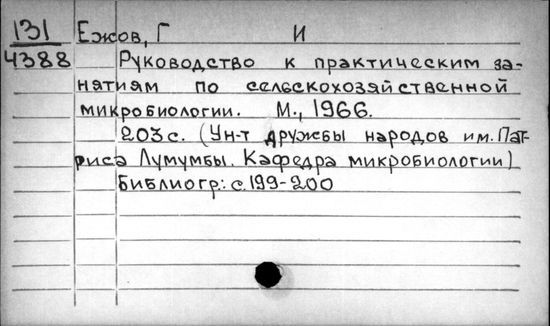 131 Ежов, Г И
4388 Руководство к практическим за-
нятиям по сельскохозяйственной
микробиологии. М., 1966.
203 с. (Ун-т дружбы народов им. Пат-
риса Лумумбы. Кафедра микробиологии)
Библиогр: с. 199-200